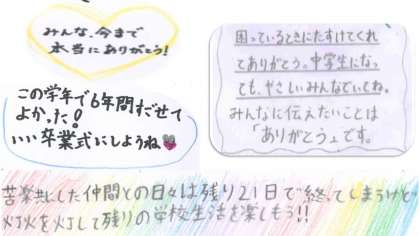 みんな、今まで
本当にありがとう！
この学年で6年間すごせて
よかった！
いい卒業式にしようね
困っているときにたすけてくれ
てありがとう。中学生になっ
ても、やさしいみんなでいてね。
みんなに伝えたいことは
「ありがとう」です。
苦楽共にした仲間との日々は残り21日で終ってしまうけど
灯火を灯して残りの学校生活を楽しもう!!